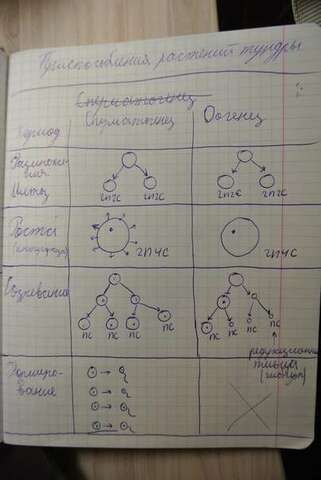 Приспособления растений тундры
Сперматогенез
Период
Сперматогенез
Оогенез
Размноже-
ния
Митоз
2n2c 2n2c
2n2c 2n2c
Роста
(интерфаза)
2n4c
2n4c
Созревание
nc nc nc nc
nc nc nc nc
редукционные
тельца
Формиро-
вание